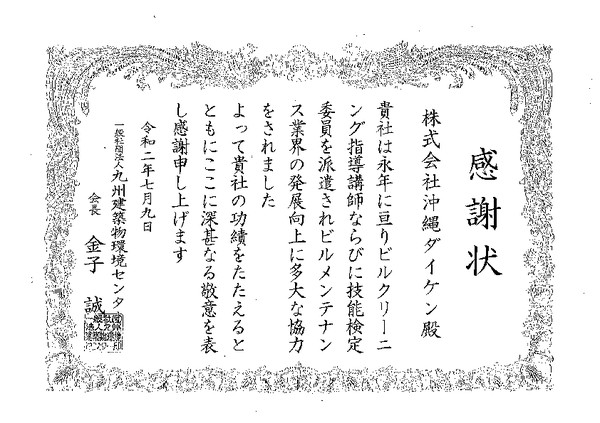 感謝状
株式会社沖縄ダイケン殿
貴社は永年に亘りビルクリーニ
ング指導講師ならびに技能検定
委員を派遣されビルメンテナン
ス業界の発展向上に多大な協力
をされました
よって貴社の功績をたたえると
ともにここに深甚なる敬意を表
し感謝申し上げます
令和二年七月九日
一般社団法人九州建築物環境センター
会長 金子 誠